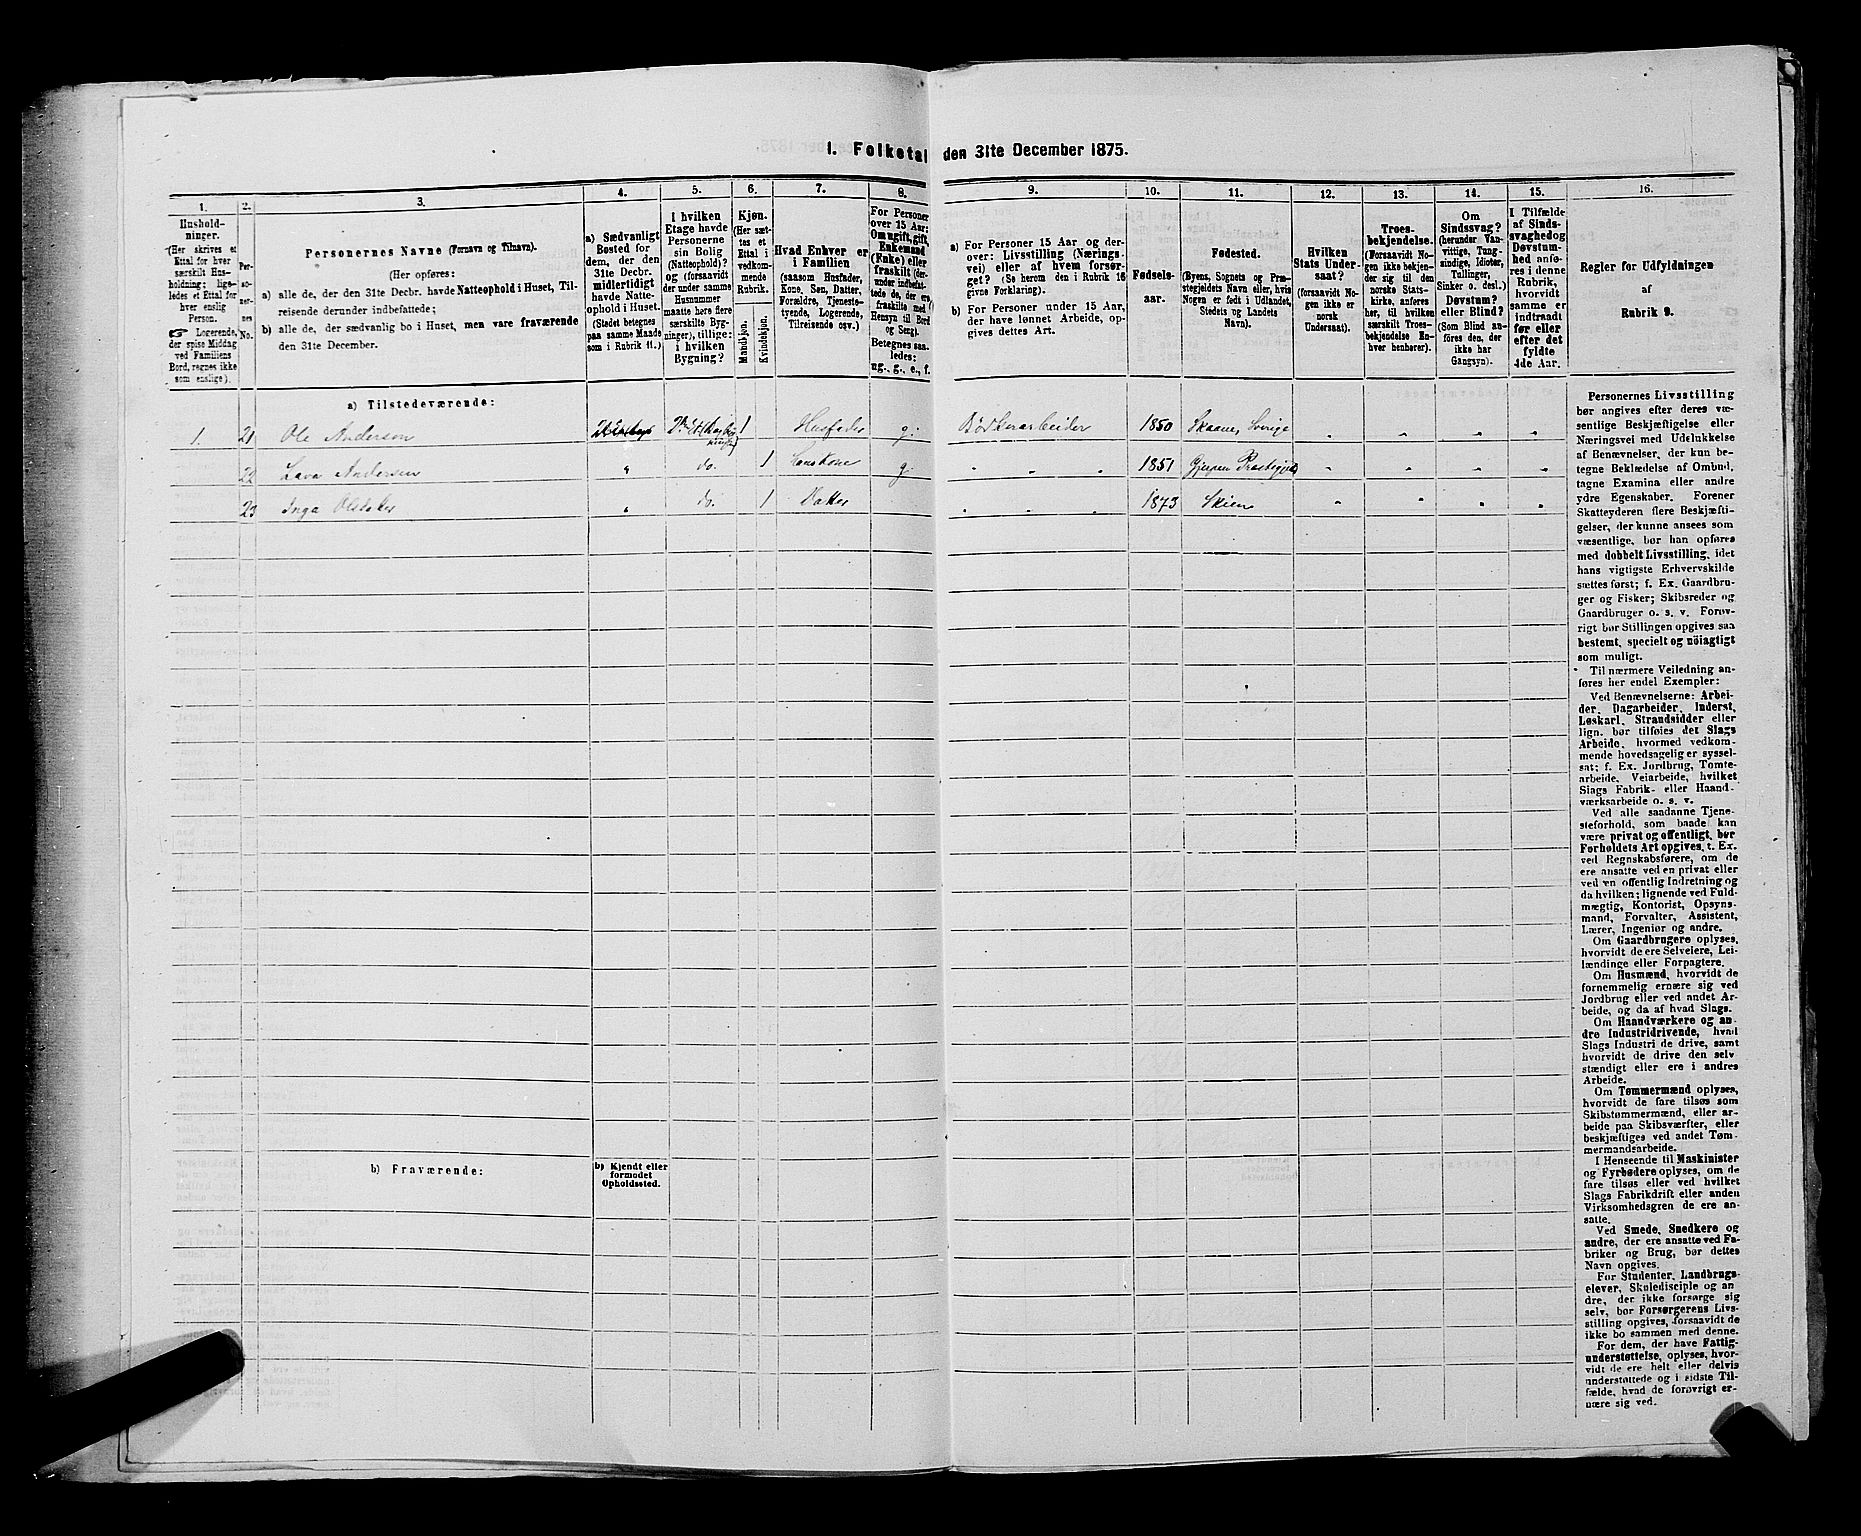 1. Folketal den 31te December 1875.
1. 2. 3. 4. 5. 6. 7. 8. 9. 10. 11. 12. 13. 14. 15. 16.
Hushold-
ninger.
(Her skrives et
Ettal for hver
særskilt Hus-
holdning; lige-
ledes et Ettal for
hver enslig
Person.
☞ Logerende,
der spise Middag
ved Familiens
Bord, regnes ikke
som enslige).
Per-
so-
ner-
nes
No.
Personernes Navne (Fornavn og Tilnavn).
(Her opføres:
a) alle de, der den 31te Decbr. havde Natteophold i Huset, Til-
reisende derunder indbefattede;
b) alle de, der sædvanlig bo i Huset, men vare fraværende
den 31te December.
a) Sædvanligt
Bosted for
dem, der den
31te Decbr.
midlertidigt
havde Natte-
ophold i Huset.
(Stedet betegnes
paa samme Maade
som i Rubrik 11.)
I hvilken
Etage havde
Personerne
sin Bolig
(Natteophold)?
(forsaavidt
der under samme
Husnummer
maatte høre flere
særskilte Byg-
ninger), tillige:
i hvilken
Bygning?
Kjøn.
(Her sæt-
tes et
Ettal i
vedkom-
mende
Rubrik.
Mandkjøn.
Kvindekjøn.
Hvad Enhver er
i Familien
(saasom Husfader,
Kone, Søn, Datter,
Forældre, Tjeneste-
tyende, Logerende,
Tilreisende osv.)
For Personer
over 15 Aar:
Om ugift, gift,
Enkemand
(Enke) eller
fraskilt (der-
under indbefat-
tede de, der ere
fraskilte med
Hensyn til Bord
og Seng).
Betegnes saa-
ledes:
ug., g., e., f.
a) For Personer 15 Aar og der-
over: Livsstilling (Nærings-
vei) eller af hvem forsør-
get? (Se herom den i Rubrik 16
givne Forklaring).
b) For Personer under 15 Aar,
der have lønnet Arbeide, op-
gives dettes Art.
Fødsels-
aar.
Fødested.
(Byens, Sognets og Præ-
stegjeldets Navn eller, hvis
Nogen er født i Udlandet,
Stedets og Landets
Navn).
Hvilken
Stats Under-
saat?
(forsaavidt No-
gen ikke er
norsk
Undersaat).
Troes-
bekjendelse.
(Forsaavidt No-
gen ikke bekjen-
der sig til den
norske Stats-
kirke, anføres
her, til hvilken
særskilt Troes-
bekjendelse En-
hver henhører).
Om
Sindssvag?
(herunder Van-
vittige, Tung-
sindige, Idioter,
Tullinger,
Sinker o. desl.)
Døvstum?
eller Blind?
(Som Blind an-
føres den, der
ikke har
Gangsyn).
I Tilfælde
af Sinds-
svaghed og
Døvstum-
hed anfø-
res i denne
Rubrik,
hvorvidt
samme er
indtraadt
før eller
efter det
fyldte
4de Aar.
Regler for Udfyldningen
af
Rubrik 9.
a) Tilstedeværende:
1. 21 Ole Anderson 1 Husfader g. Bødkerarbeider 1850 Skaane, Sverige
22 Lava Andersen do. 1 Huuskone g. 1851 Gjerpen
23 Inga Olsdatter do. 1 Datter 1873 Skien
b) Fraværende:
b) Kjendt eller
formodet
Opholdssted.
Personernes Livsstilling
bør angives efter deres væ-
sentlige Beskjæftigelse eller
Næringsvei med Udelukkelse
af Benævnelser, der kun be-
tegne Beklædelse af Ombud,
tagne Examina eller andre
ydre Egenskaber. Forener
Skatteyderen flere Beskjæfti-
gelser, der kunne ansees som
væsentlige, bør han opføres
med dobbelt Livsstilling, idet
hans vigtigste Erhvervskilde
sættes først; f. Ex. Gaardbru-
ger og Fisker; Skibsreder og
Gaardbruger o. s. v. Forøv-
rigt bør Stillingen opgives saa
bestemt, specielt og nöiagtigt
som muligt.
Til nærmere Veiledning an-
føres her endel Exempler:
Ved Benævnelserne: Arbei-
der, Dagarbeider, Inderst,
Løskarl, Strandsidder eller
lign. bør tilføies det Slags
Arbeide, hvormed vedkom-
mende hovedsagelig er syssel-
sat; f. Ex. Jordbrug, Tomte-
arbeide, Veiarbeide, hvilket
Slags Fabrik- eller Haand-
værksarbeide o. s. v.
Ved alle saadanne Tjene-
steforhold, som baade kan
være privat og offentligt, bør
Forholdets Art opgives, t. Ex.
ved Regnskabsførere, om de
ere ansatte ved en privat eller
ved en offentlig Indretning og
da hvilken; lignende ved Fuld-
mægtig, Kontorist, Opsyns-
mand, Forvalter, Assistent,
Lærer, Ingeniør og andre.
Om Gaardbrugere oplyses,
hvorvidt de ere Selveiere, Lei-
lændinge eller Forpagtere.
Om Husmænd, hvorvidt de
fornemmelig ernære sig ved
Jordbrug eller ved andet Ar-
beide, og da af hvad Slags.
Om Haandværkere og an-
dre Industridrivende, hvad
Slags Industri de drive, samt
hvorvidt de drive den selv-
stændigt eller ere i andres
Arbeide.
Om Tømmermænd oplyses,
hvorvidt de fare tilsøs som
Skibstømmermænd, eller ar-
beide paa Skibsværfter, eller
beskjæftiges ved andet Tøm-
mermandsarbeide.
I Henseende til Maskinister
og Fyrbødere oplyses, om de
fare tilsøs eller ved hvilket
Slags Fabrikdrift eller anden
Virksomhedsgren de ere an-
satte.
Ved Smede, Snedkere og
andre, der ere ansatte ved Fa-
briker og Brug, bør dettes
Navn opgives.
For Studenter, Landbrugs-
elever, Skoledisciple og an-
dre, der ikke forsørge sig
selv, bør Forsørgerens Livs-
stilling opgives, forsaavidt de
ikke bo sammen med denne.
For dem, der have Fattig-
understøttelse, oplyses, hvor-
vidt de ere helt eller delvis
understøttede og i sidste Til-
fælde, hvad de forøvrigt er-
nære sig ved.